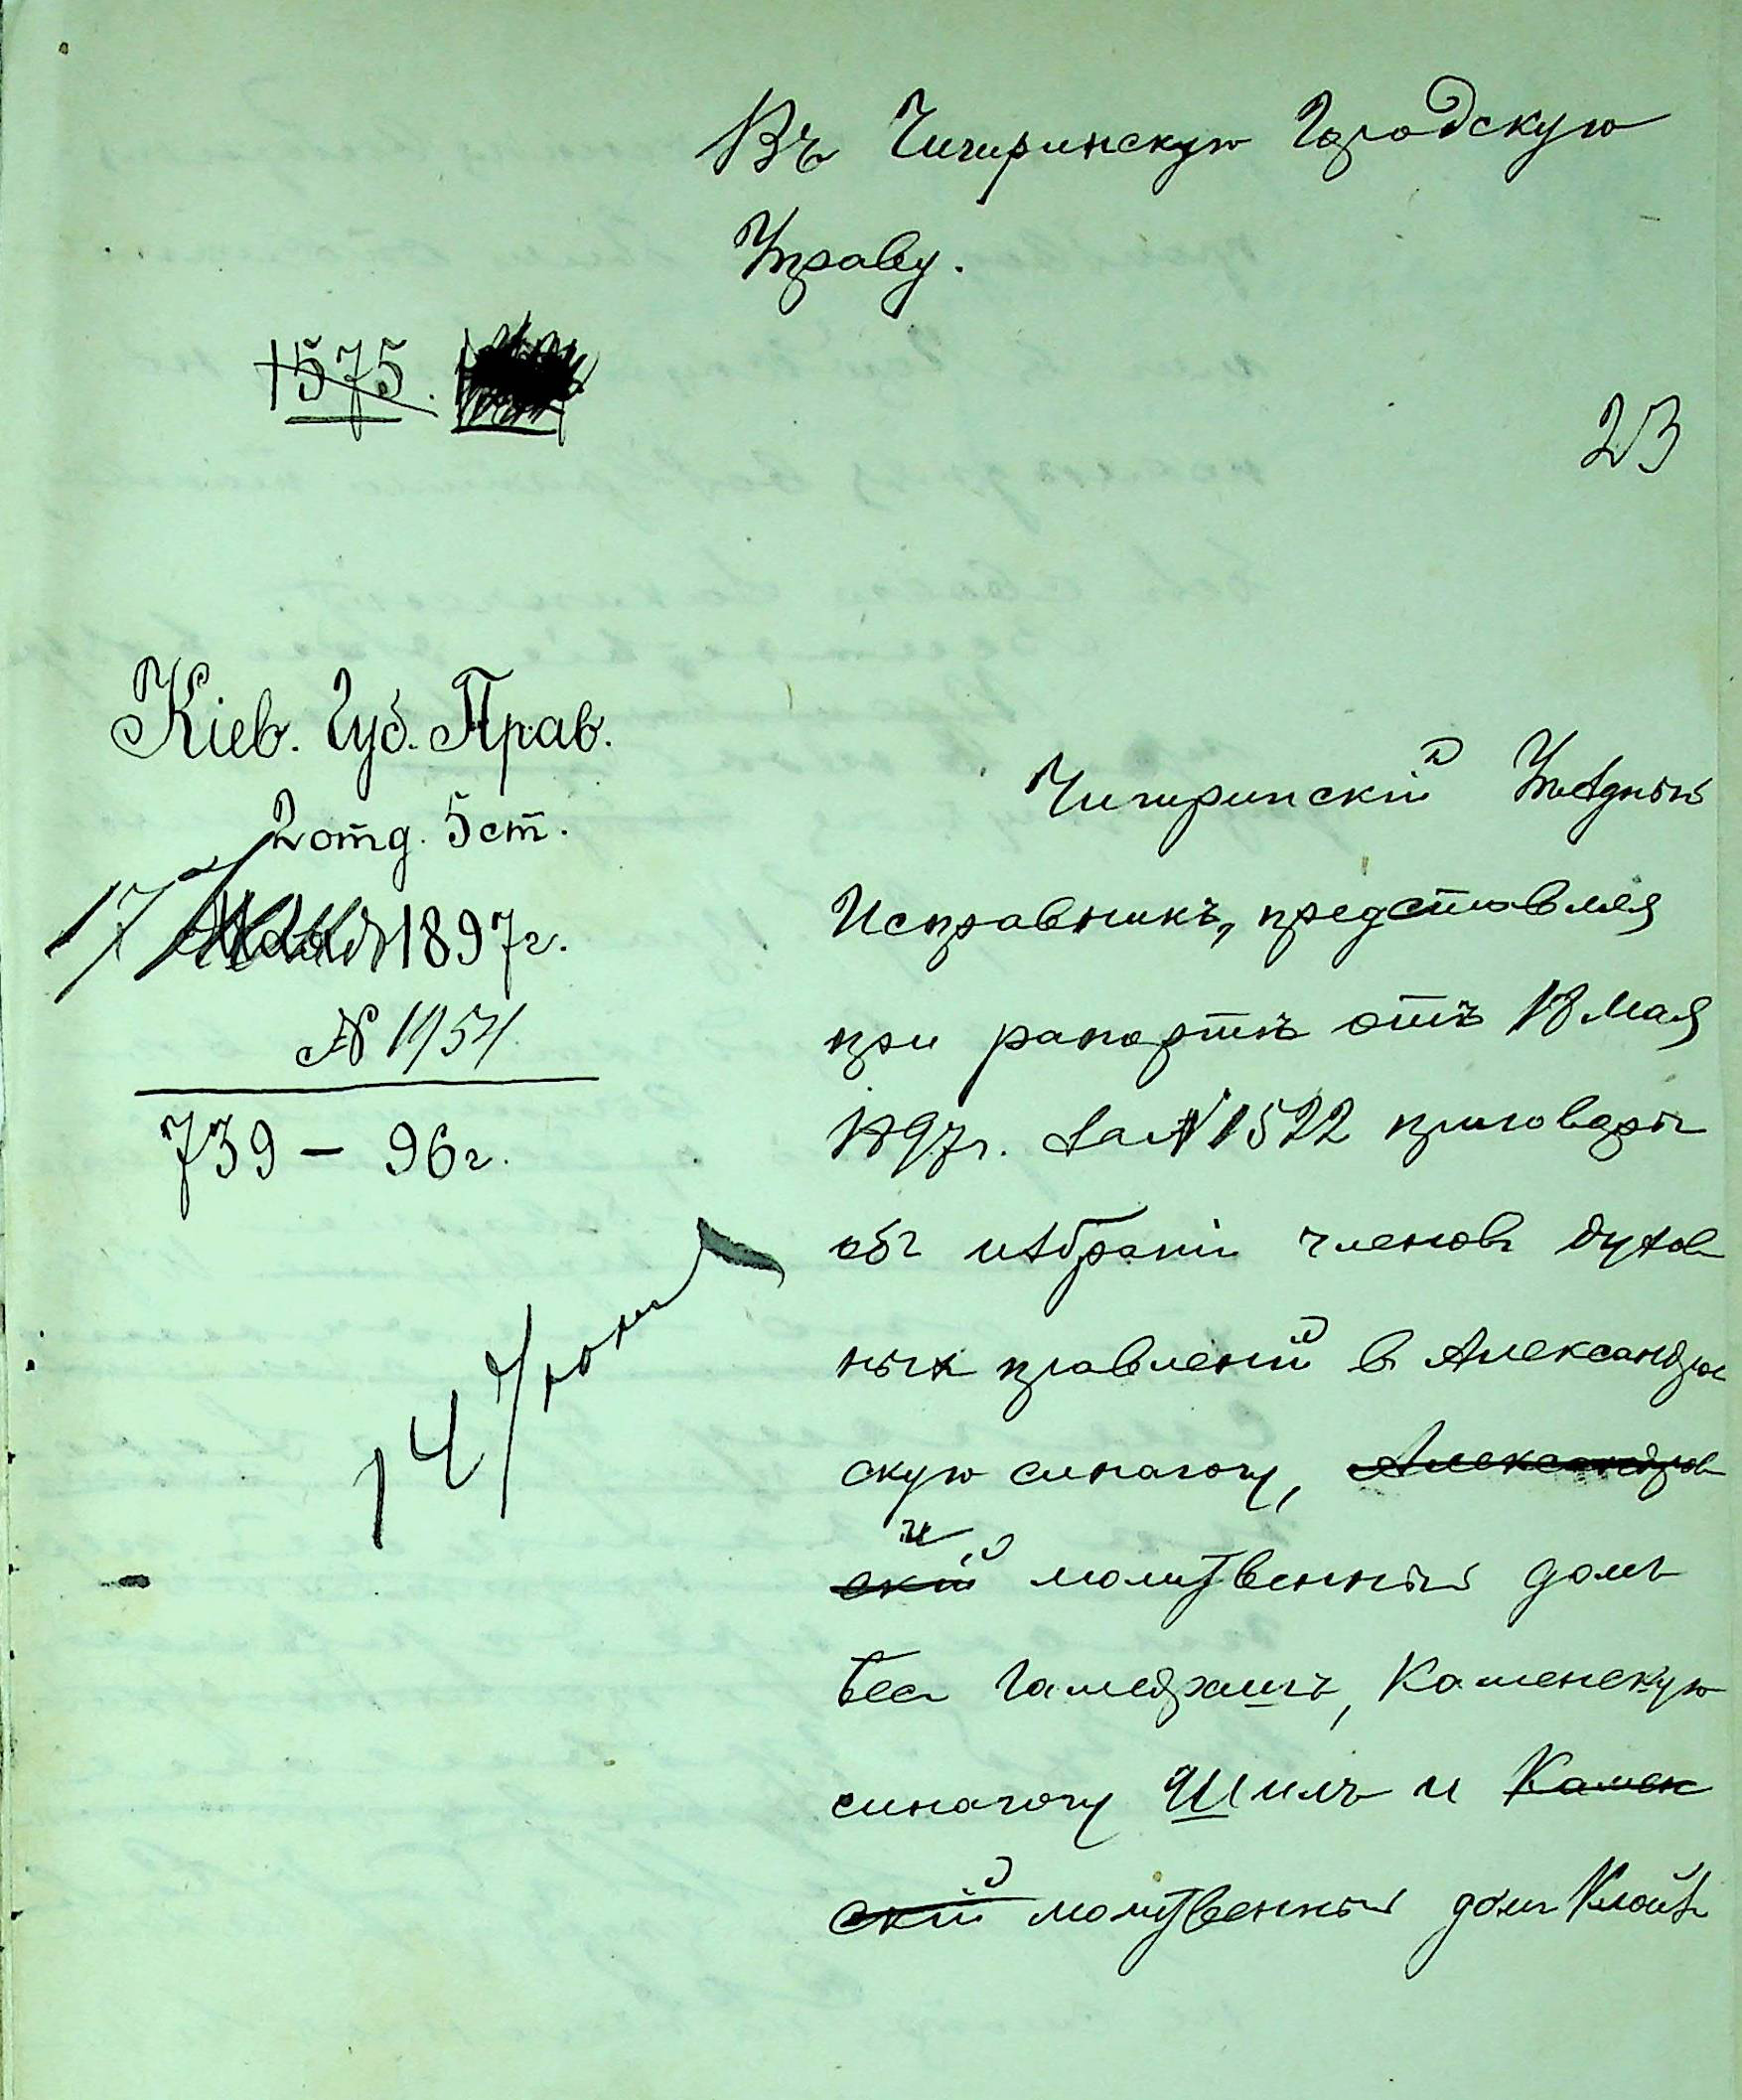 Въ Чигиринскую Городскую
Управу.
1575.
23
Кіев. Губ. Прав.
2 отд. 5 ст.
17 1897 г.
№ 1954
739 – 96 г.
14 Iюня
Чигиринскій Уѣздный
Исправникъ, представляя
при рапортѣ отъ 13 Мая
1897 г. за № 1522 приговоры
объ избраніи членовъ духов
ныхъ правленій в Александров
скую синагогу, Александров
скій и молитвенный домъ
Бес Гамедрашъ, Каменскую
синагогу Шиль и Камен
скій молитвенный домъ Клойзъ